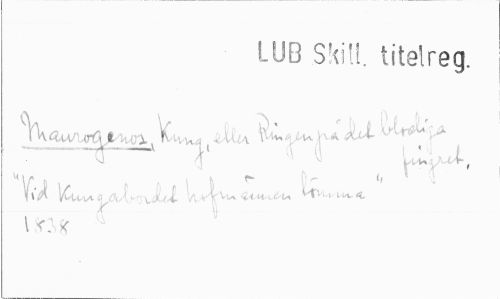 LUB Skill. titelreg.
Maurogenos, Kung, eller Ringen på det blodiga
fingret.
"Vid Kungabordet hofmännen tömma"
1838